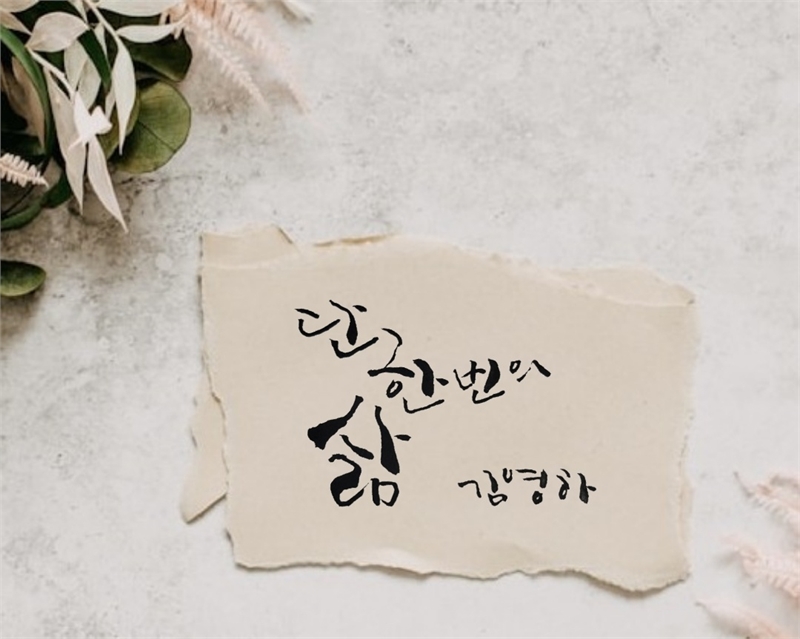 단 한 번의
삶
김영하